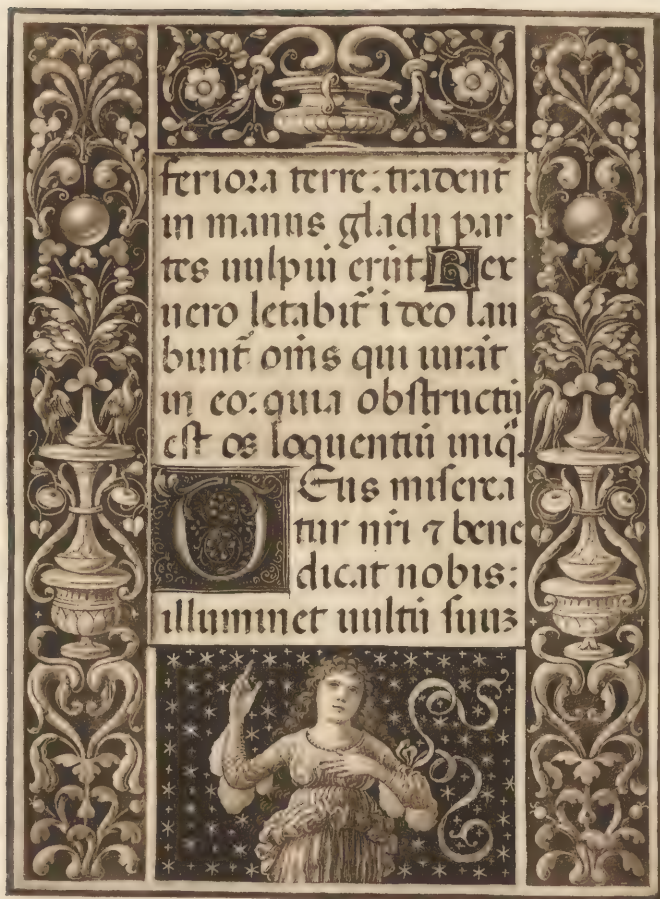 feriora terre: tradent
in manus gladij par
tes uulpiū erūt. Rex
uero letabit̃ ĩ deo lau
bunt̃ om̃s qui iurãt
in eo: quia obstructũ
est os loquentiũ iniq̃.
Deus miserea
tur nr̃i ⁊ bene
dicat nobis:
illuminet uultũ suuz